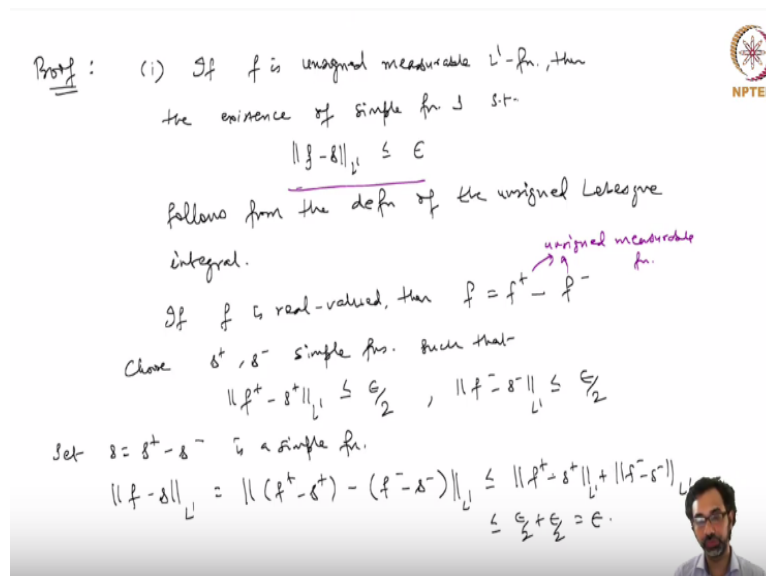 Proof : (i) If f is unsigned measurable L¹-fn., then
the existence of simple fn. s s.t.
‖f-s‖_L¹ ≤ ε
follows from the defn of the unsigned Lebesgue
integral.
unsigned measurable fn.
If f is real-valued, then f = f⁺ - f⁻
Choose s⁺, s⁻ simple fns. such that
‖f⁺ - s⁺‖_L¹ ≤ ε/2 , ‖f⁻ - s⁻‖_L¹ ≤ ε/2
Set s = s⁺ - s⁻ is a simple fn.
‖f - s‖_L¹ = ‖(f⁺ - s⁺) - (f⁻ - s⁻)‖_L¹ ≤ ‖f⁺ - s⁺‖_L¹ + ‖f⁻ - s⁻‖_L¹
≤ ε/2 + ε/2 = ε.
NPTEL